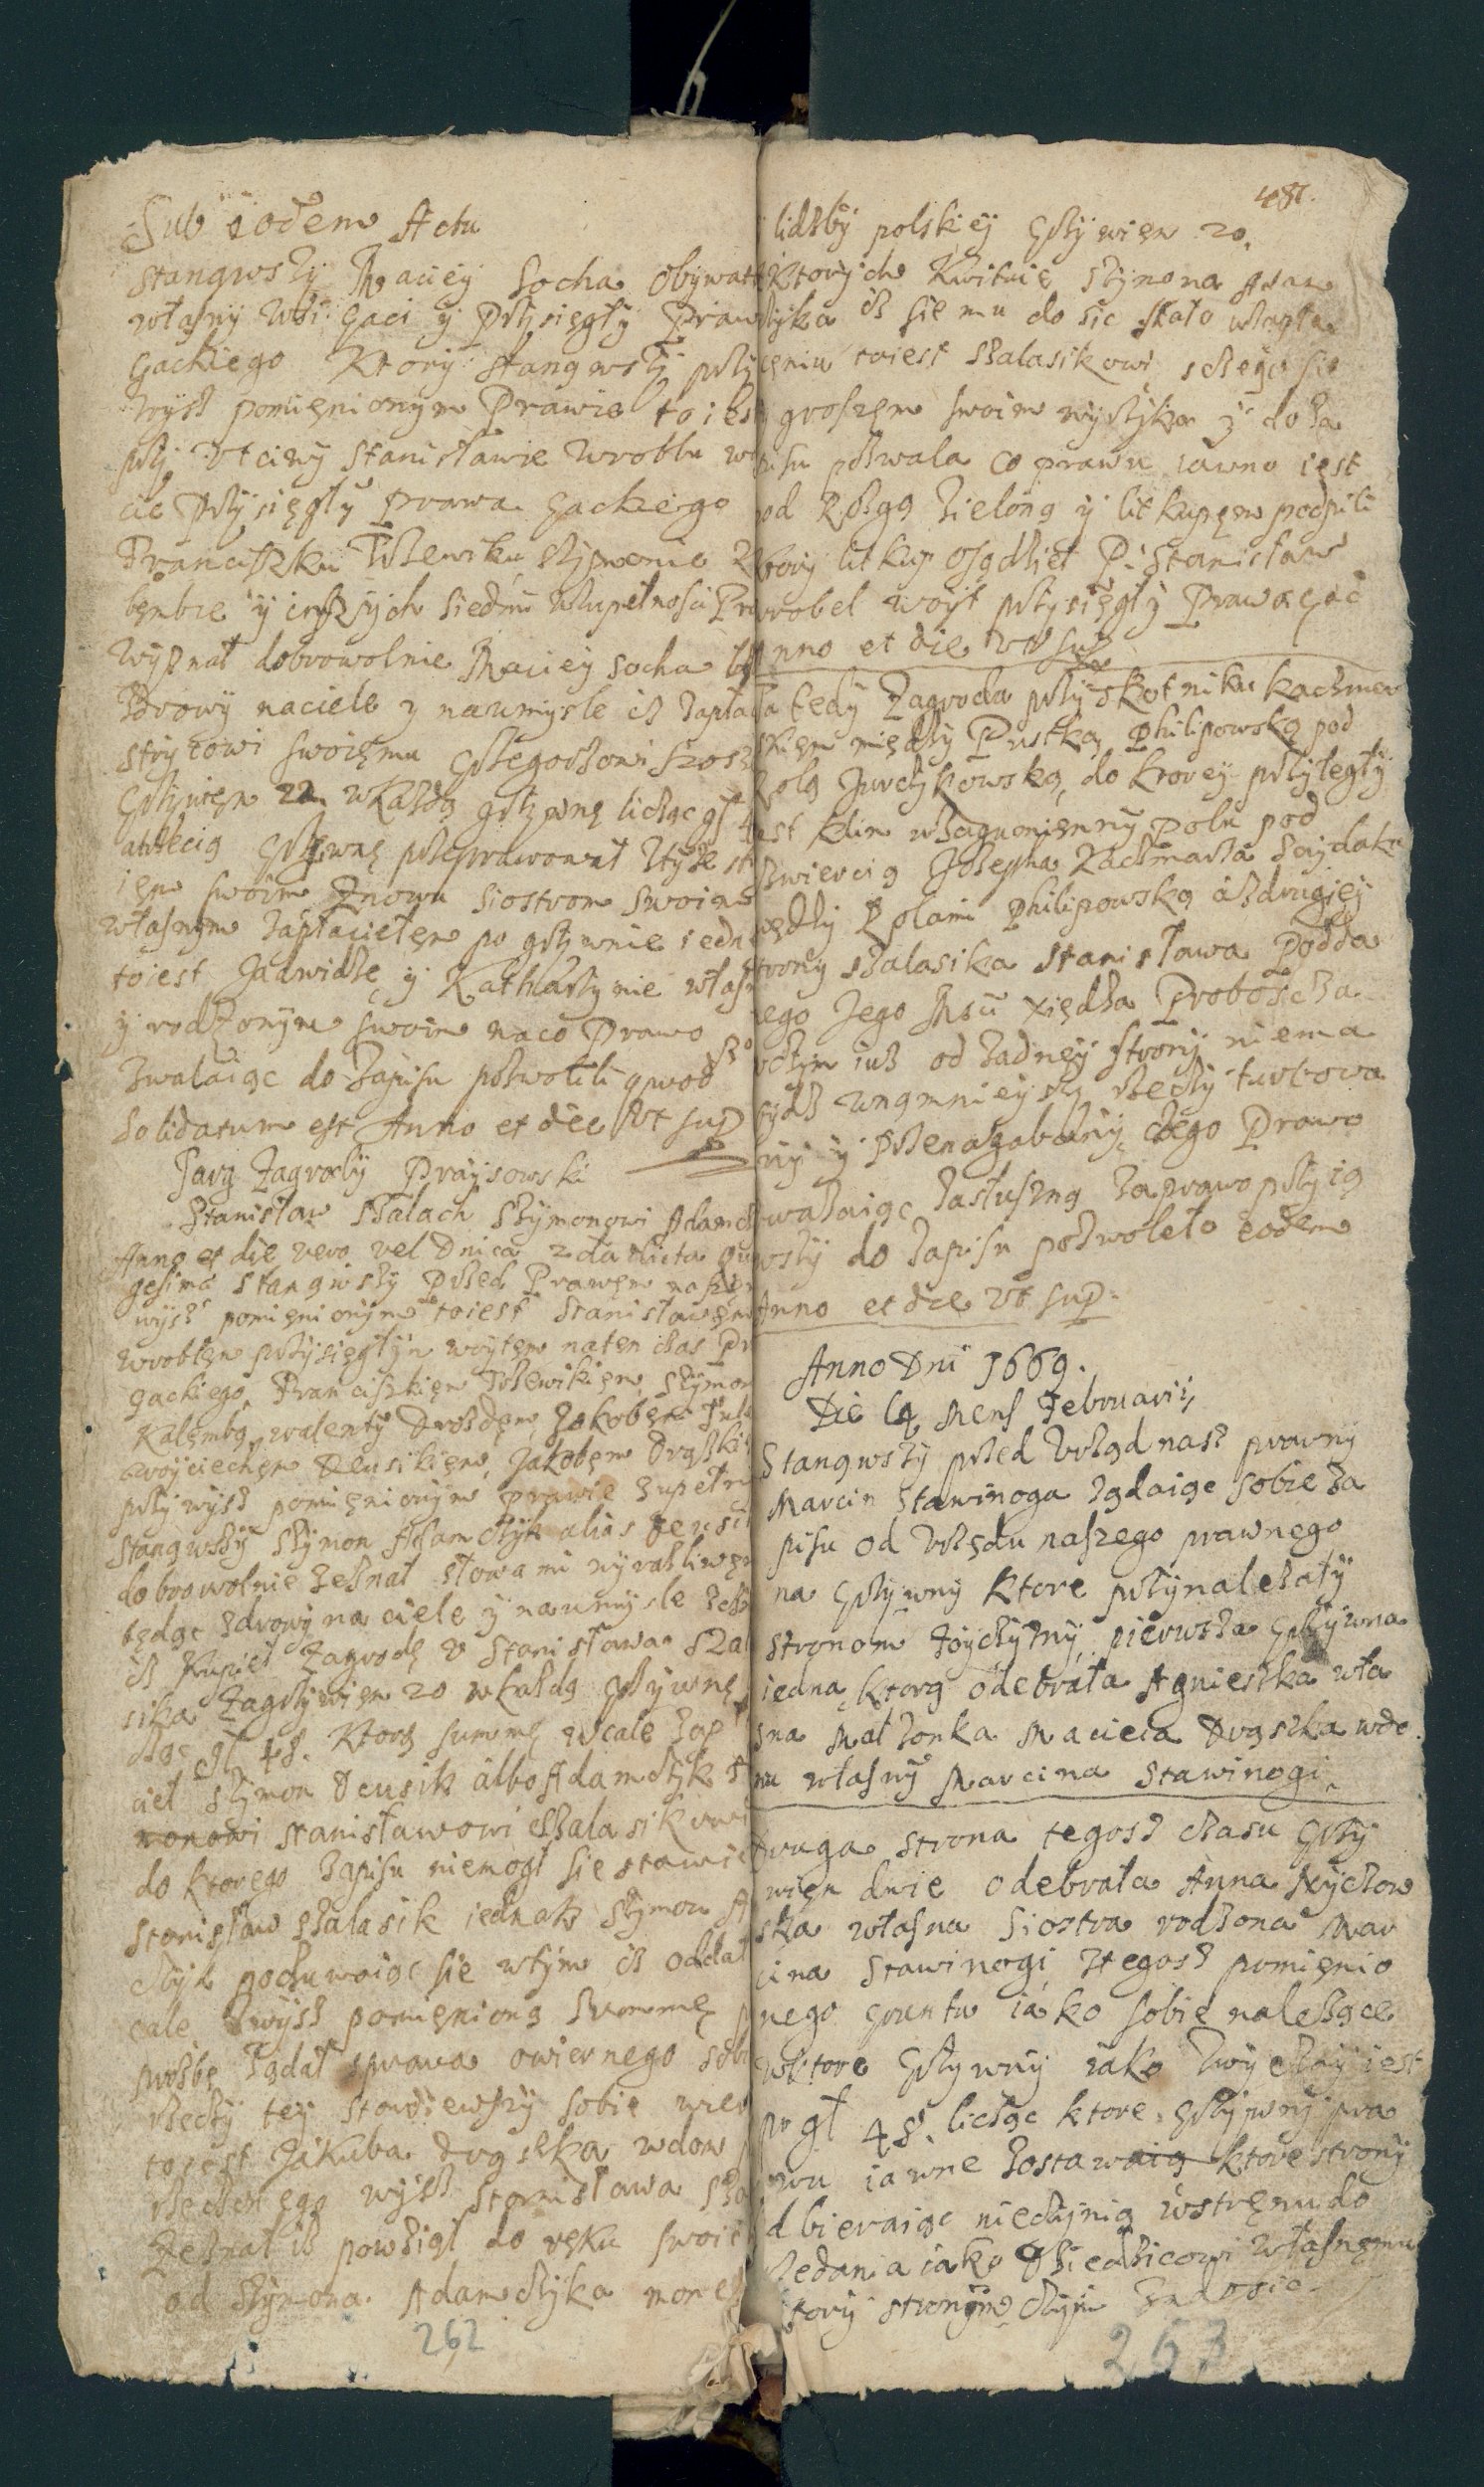 Sub eodem Actu
Stanąwszy Maciey Socha Obywat
własny wsi Gaci y Przysięgły Praw
Gackiego Ktory stanąwszy przy
wysz pomięnionym Prawie to iest
przy Vtciwy Stanisławie Wroblu
cie Przysięgły Prawa Gackiego
Franciszku Tszewiku Szymonie
bembie y inszych siedmi wzupełnosci
Wyznał dobrowolnie Maciey Socha
Zdrowy naciele y naumysle isz zapła
stryiowi swoięmu Grzegorzowi Szos
Grzywien 22 wkażdą grzywnę licząc gł
a trzecią Grzywnę przeprawował
ięm swoim Znowu siostrom swoim
własnym zapłaciełem po grzywnie iedn
toiest Jadwidze y Katharzynie włas
y rodzonym swoim naco Prawo
zwalaiąc do Zapisu pozwolili quod
solidatum est Anno et die Vt sup
Targ Zagrody Praysowski
Stanisław Szalach Szymonowi Adamcz
Anno et die vero vel Dnica 2da dicta
gesima Stanąwszy Przed Prawem naszem
wysz pomięnionym toiest Stanisławęm
Wroblęm przysięgłym woytem naten czas
gackiego Franciszkięm Tszewikięm Szymon
Kalęmbą walenty Drozdęm Jakobęm
woyciechęm Deusikięm Jakobęm Drązki
przy wysz pomięnionym prawie zupełn
Stanąwszy Szymon Adamczyk alias Deusi
dobrowolnie zeznał słowami wyrażliwęm
będąc zdrowy na ciele y naumysle
isz kupieł Zagrodę v Stanisława Szal
sika Zagrzywien 20 wkażdą grzywnę
cząc gł 48. Ktorą summę wcale zap
cieł Szymon Deusik albo Adamczyk
nonowi Stanisławowi Szalasikowi
do ktorego Zapisu niemogł się stawic
Stanisław Szalasik iednak Szymon
czyk poczuwaiąc się wtym isz oddał
cale zwysz pomięnioną summę
prozbę żądał prawa owiernego
rzeczy tey stawiewszy sobie
toiest Jakuba Drąszka wdom
rzeczonęgo wysz Stanisława
Zeznał isz powziął do ręku swoi
od Szymona Adamczyka
262
481.
lidzby polskięy Grzywien 20.
Ktorych Kwituie Szymona Adam
czyka isz się mu do sic stało wzapła
cęniu toiest Szalasikowi
groszęm swoim wszytka y do za
pisu pozwala co prawu iawno iest
pod Rózgą Zieloną y litkupęm podpili
ktory litkup osądzieł P. Stanisław
wrobel woyt przysięgły Prawa Gac
Anno et die vt sup
Ta tedy Zagroda przy Skotniku kaczmar
skięm między Pustką Philipowską pod
Rolą Jurczykowską, do ktorey przyległy
iest klin wzagumięnny polu pod
czwiercią Jozepha Kaczmarza Szydaka
między Rolami Philipowską azdrugiey
strony Szalasika Stanisława podda
nego Jego Mscii Xiędza Proboszcza
wczym iusz od żadney strony niema
bydz wnamnieyszy rzeczy turbowa
ny y Przenagabany czego Prawo
uważaiąc zasłuszną zaprawo przyią
wszy do Zapisu pozwoleło eodem
Anno et die vt sup.
Anno Dni 1669.
Die 14 Mens Februarii
Stanąwszy przed Vrząd nasz prawny
Marcin Stawinoga żądaiąc sobie za
pisu od Vrzędu naszego prawnego
na Grzywny ktore przynależały
stronom Zoyczyzny, pierwsza Grzywna
iedna, ktorą odebrała Agnieszka wła
sna Małżonka Macieia Drąszka wde
mu własny Marcina Stawinogi
Druga strona tegosz czasu Grzy
wien dwie odebrała Anna Kyczow
ska własna siostra rodzona Mar
cina Stawinogi ztegosz pomięnio
nego gruntu iako sobie należące
wktore Grzywny iako zwyczay iest
po gł 48. licząc ktore grzywny pra
wu iawne zostawaią ktore strony
odbieraiąc nieczynią wstrętu do
żedania iako Dziedzicowi własnęmu
ktory stronym czym
263